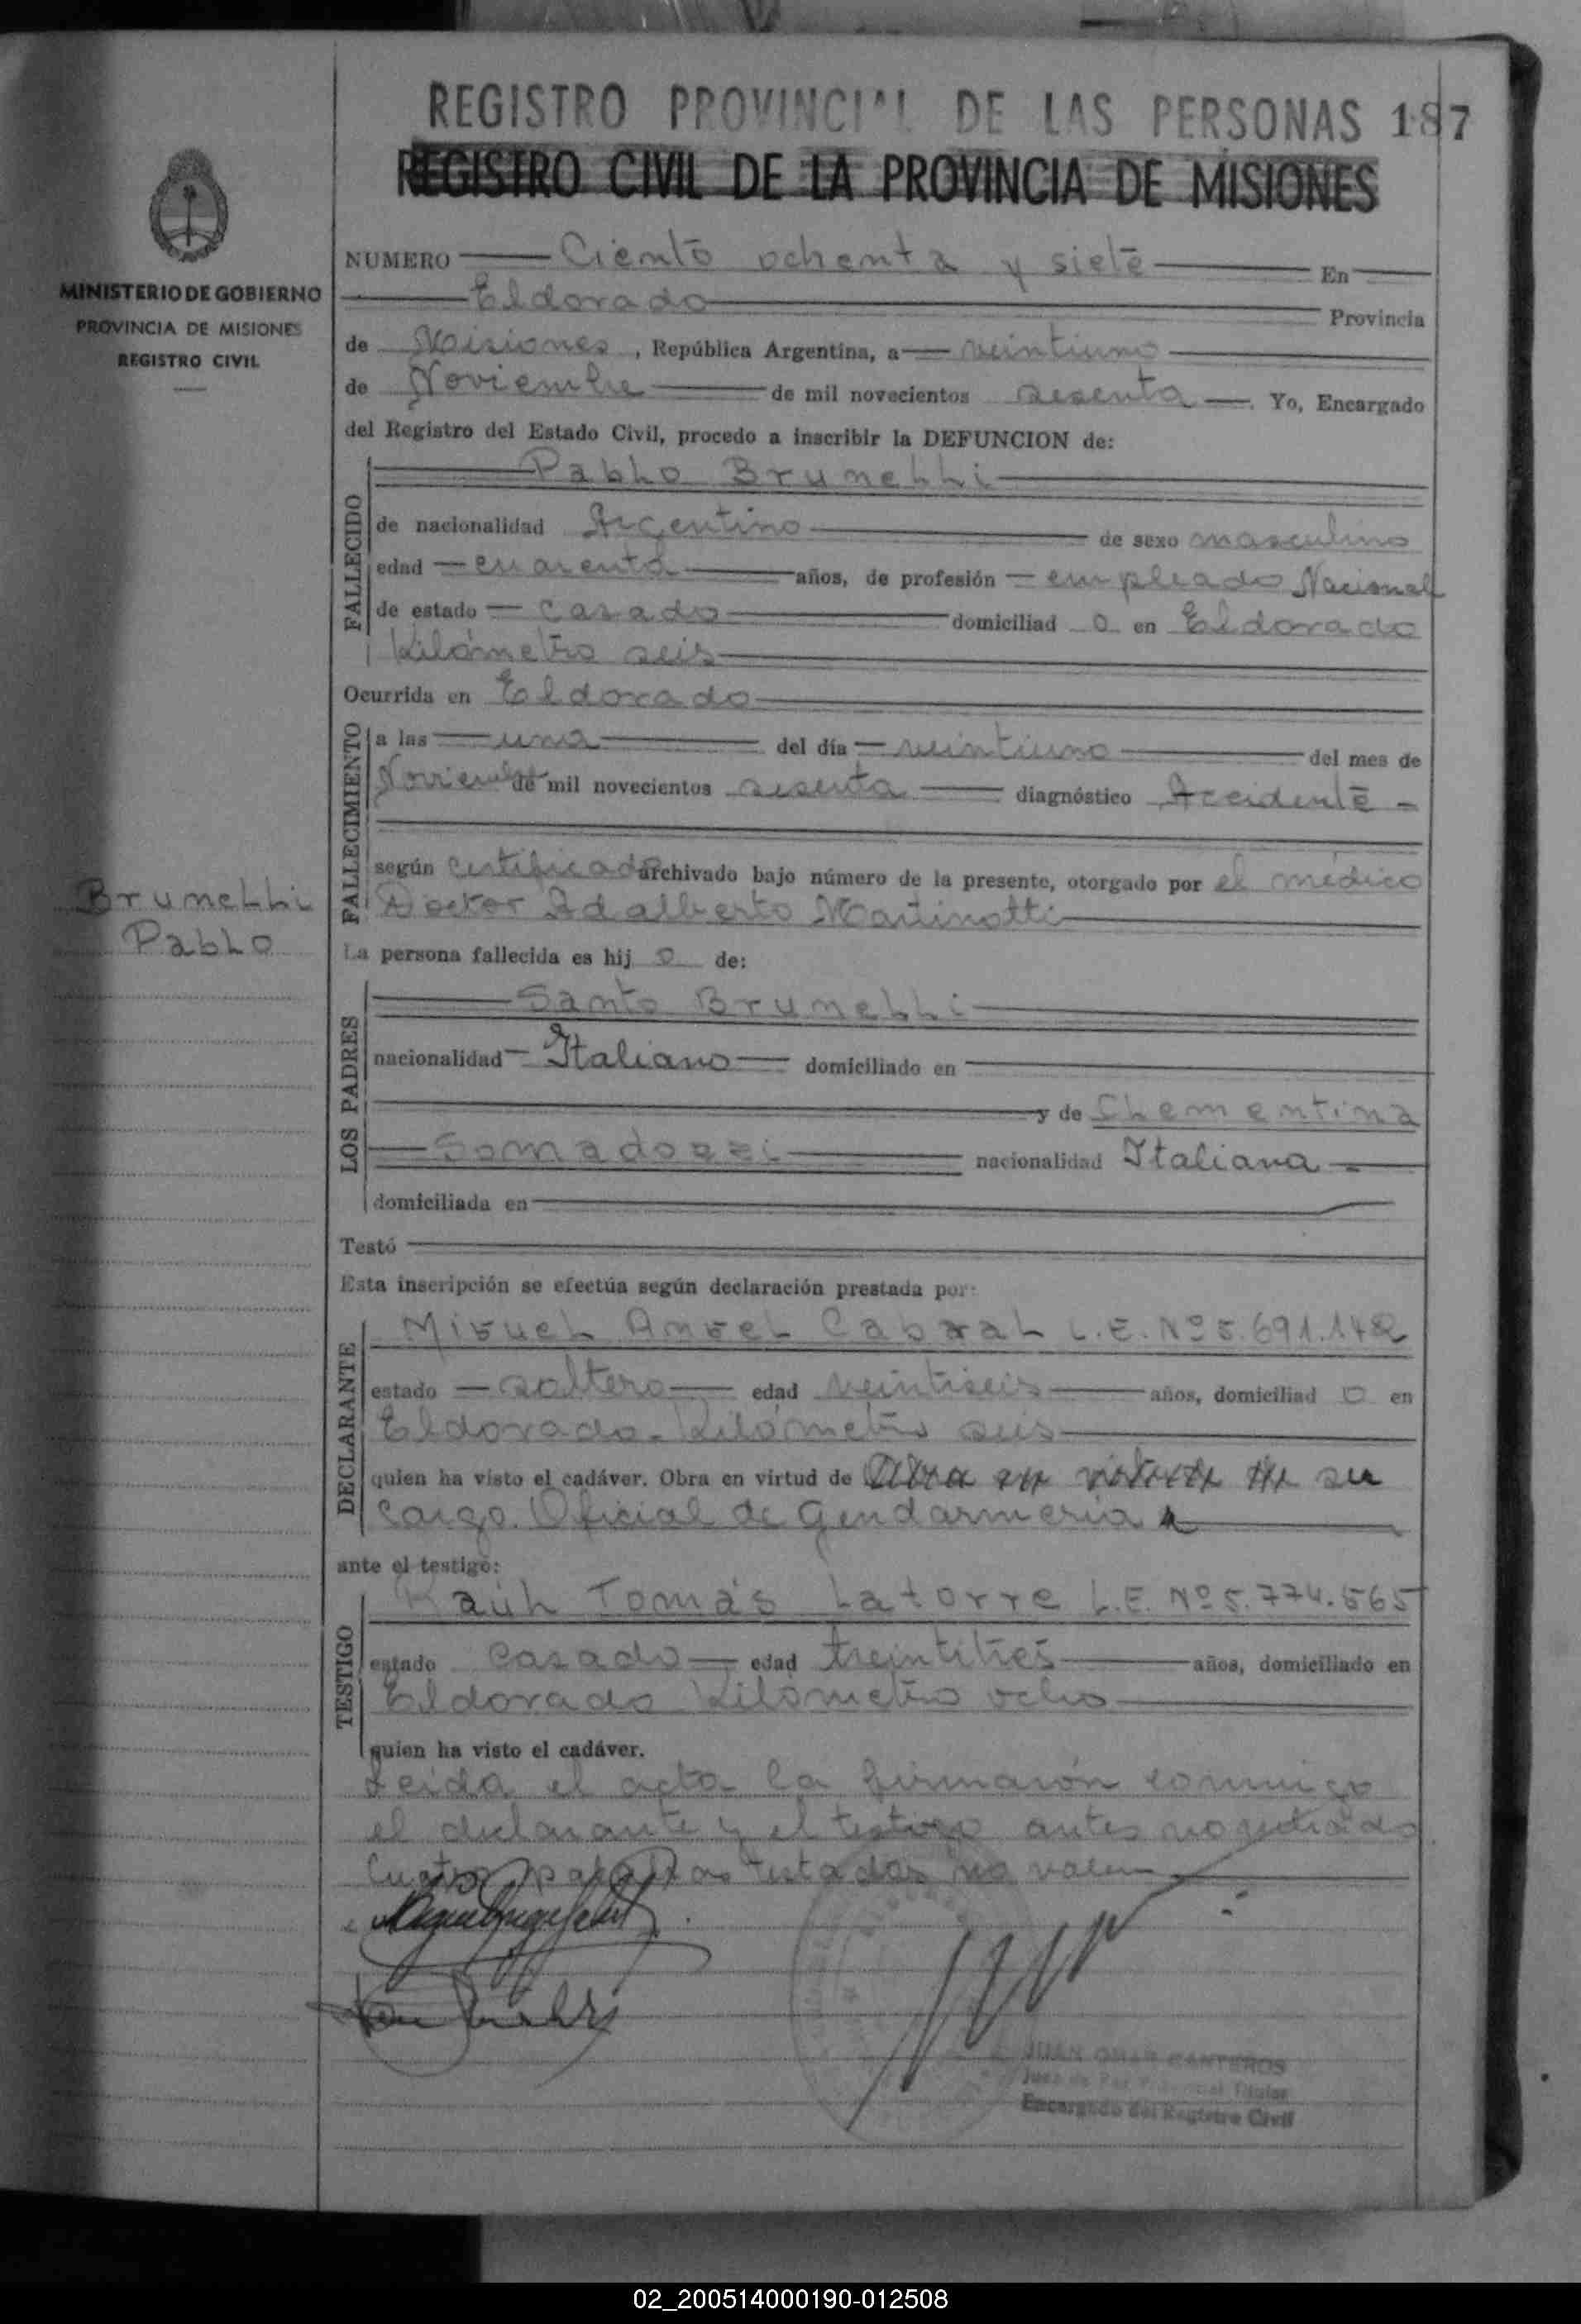 REGISTRO PROVINCIAL DE LAS PERSONAS 187
REGISTRO CIVIL DE LA PROVINCIA DE MISIONES
MINISTERIO DE GOBIERNO
PROVINCIA DE MISIONES
REGISTRO CIVIL
NUMERO Ciento ochenta y siete En
Eldorado Provincia
de Misiones, República Argentina, a veintiuno
de Noviembre de mil novecientos sesenta. Yo, Encargado
del Registro del Estado Civil, procedo a inscribir la DEFUNCION de:
FALLECIDO
Pablo Brunelli
de nacionalidad Argentino de sexo masculino
edad cuarenta años, de profesión empleado Nacional
de estado casado domiciliad o en Eldorado
Kilómetro seis
Ocurrida en Eldorado
FALLECIMIENTO
a las una del día veintiuno del mes de
Noviembre de mil novecientos sesenta diagnóstico Accidente -
según certificado archivado bajo número de la presente, otorgado por el médico
Doctor Adalberto Martinotti
Brunelli
Pablo
La persona fallecida es hij o de:
LOS PADRES
Santo Brunelli
nacionalidad Italiano domiciliado en
y de Clementina
Somadozzi nacionalidad Italiana
domiciliada en
Testó
Esta inscripción se efectúa según declaración prestada por:
DECLARANTE
Miguel Angel Cabral L.E. Nº 5.691.142
estado soltero edad veintiseis años, domiciliad o en
Eldorado. Kilómetro seis
quien ha visto el cadáver. Obra en virtud de Obra en virtud de su
cargo. Oficial de Gendarmeria
ante el testigo:
TESTIGO
Raúl Tomás Latorre L.E. Nº 5.774.565
estado casado edad treintitres años, domiciliado en
Eldorado Kilómetro ocho
quien ha visto el cadáver.
Leida el acta la firmaron conmigo
el declarante y el testigo antes
Cuatro palabras testadas no valen
JUAN OMAR CANTEROS
Juez de Paz Provincial Titular
Encargado del Registro Civil
02_200514000190-012508